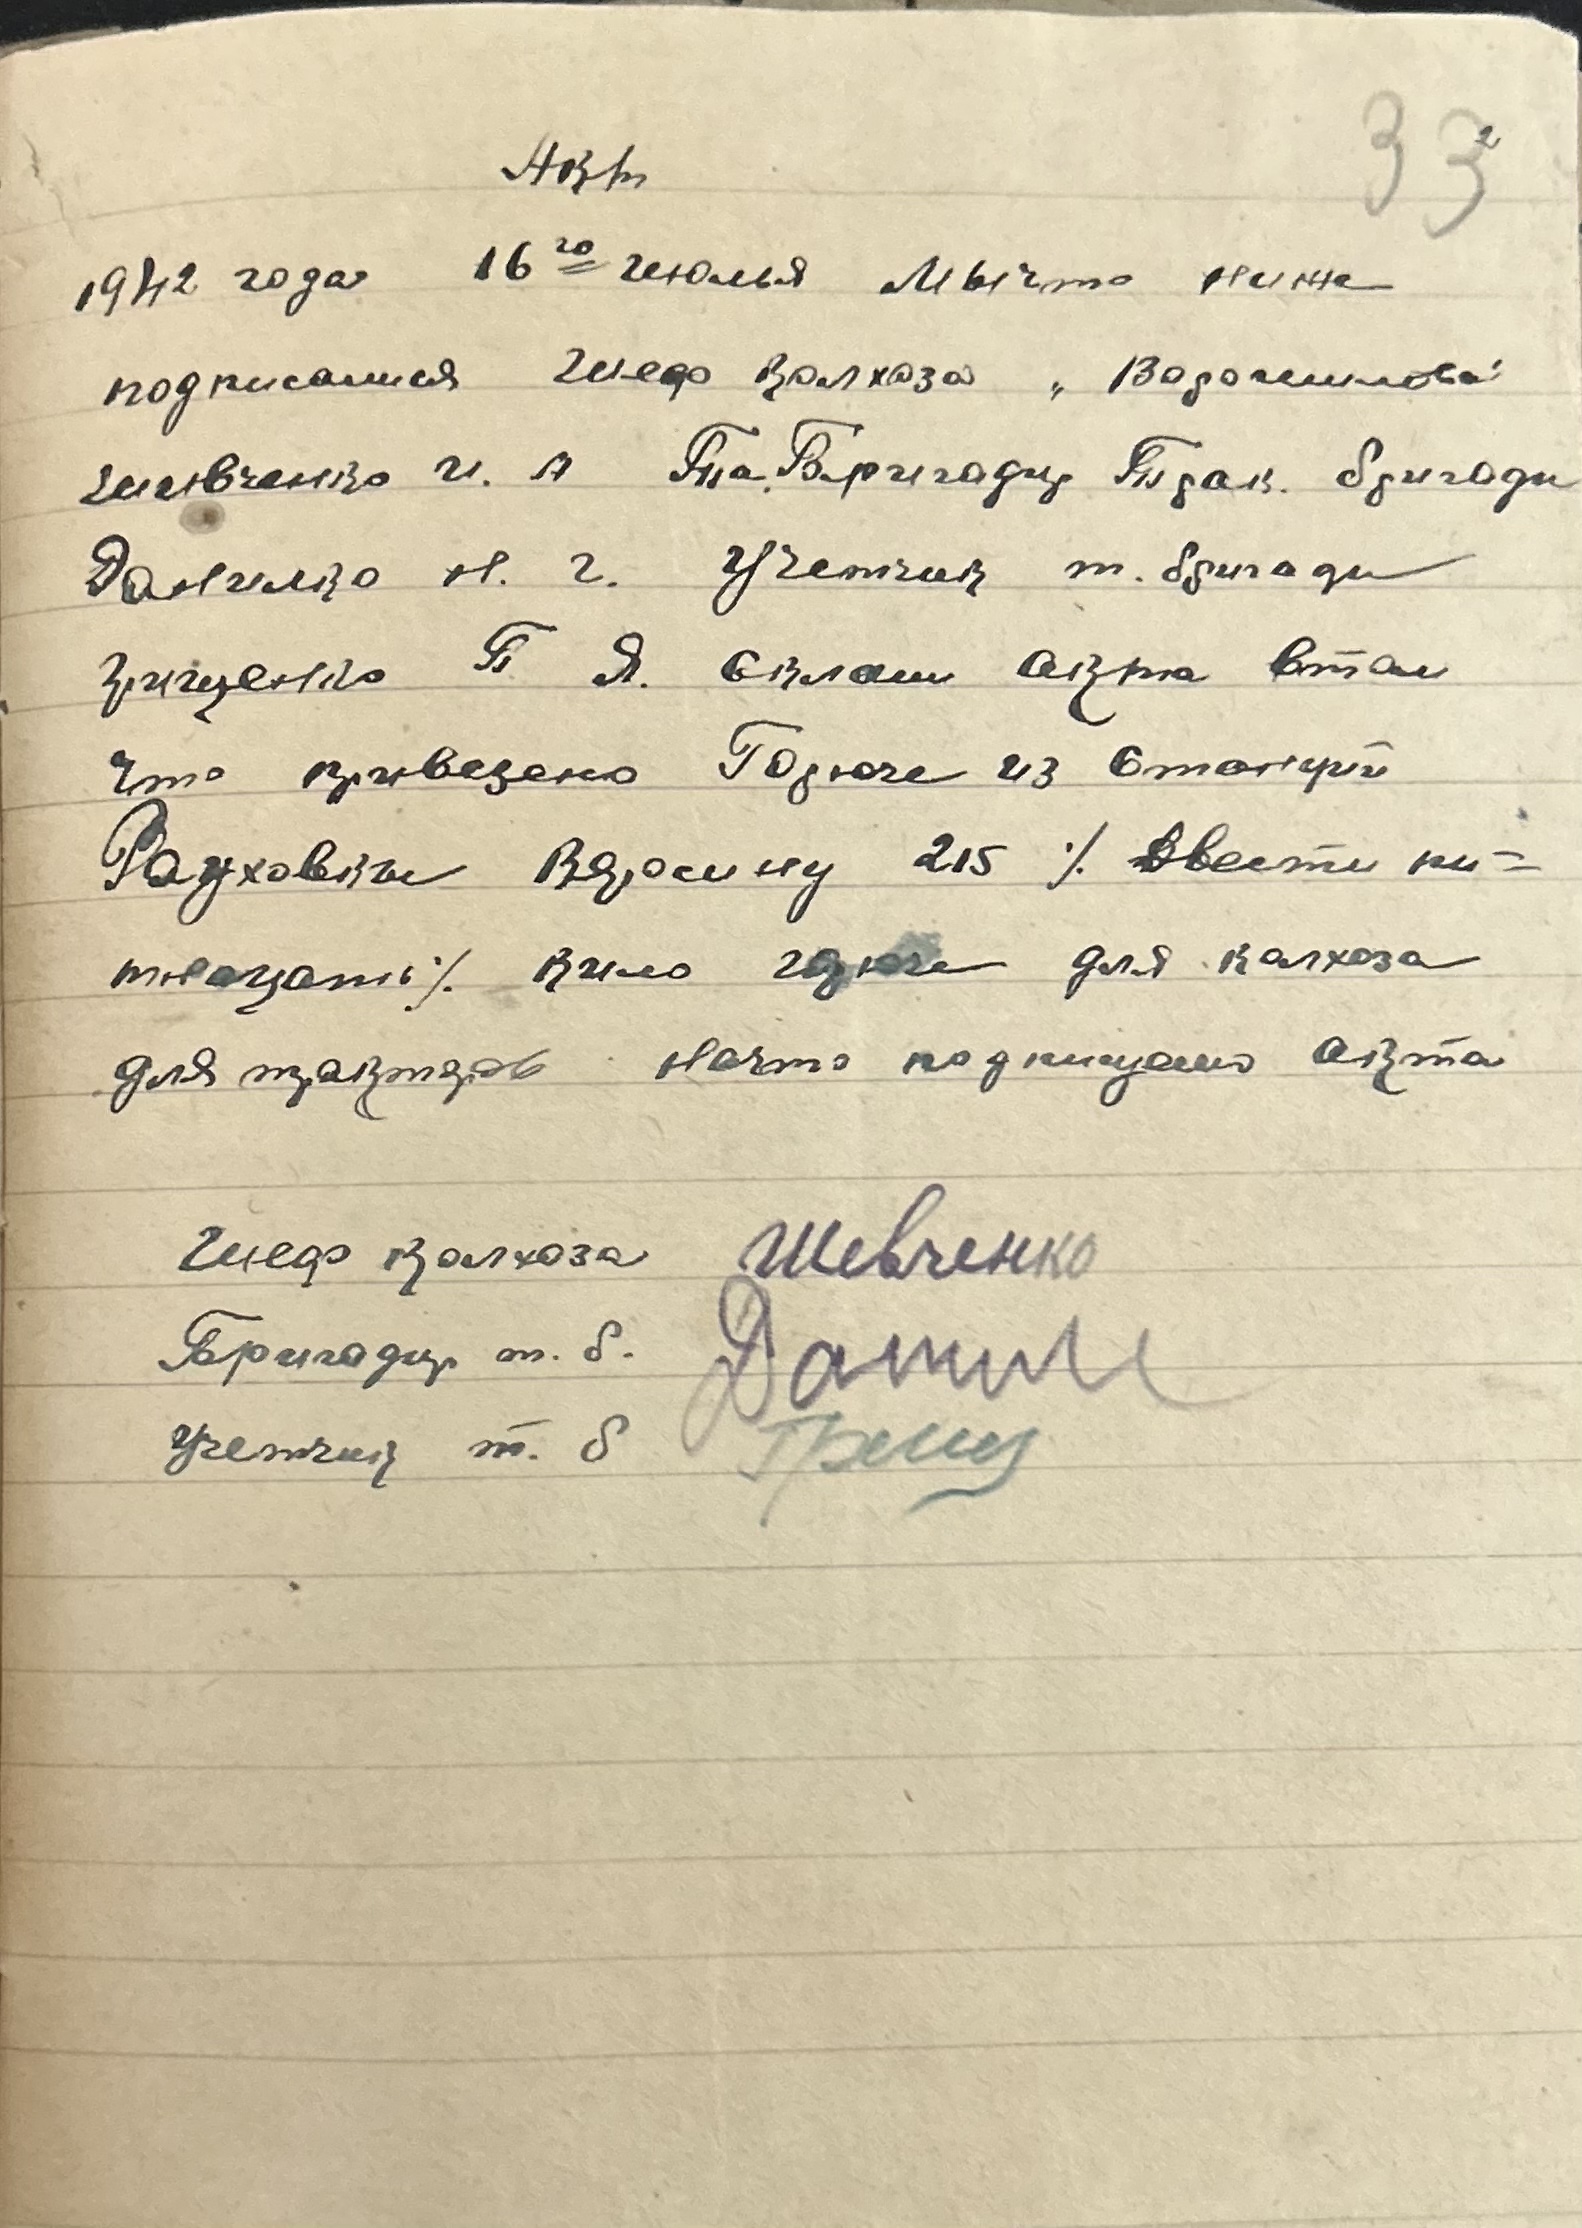 33
2
Акт
1942 года 16го июлья Мычто ниже
подписания Шеф колхоза „Ворошилова"
Шивченко И. А Та. Бригадир Трак. бригади
Данилко Н. Г. Учетчик т. бригади
Грищенко П Я. склали акта втом
что привезено Горюче из Станции
Раухов­ки Кяросину 215 ·/. Двести пи=
тнацать ·/. кило горюче для колхоза
для тракторов начто подписуемо акта
Шеф колхоза Шевченко
Бригадир т. б. Данил
Учетчик т. б Грищ